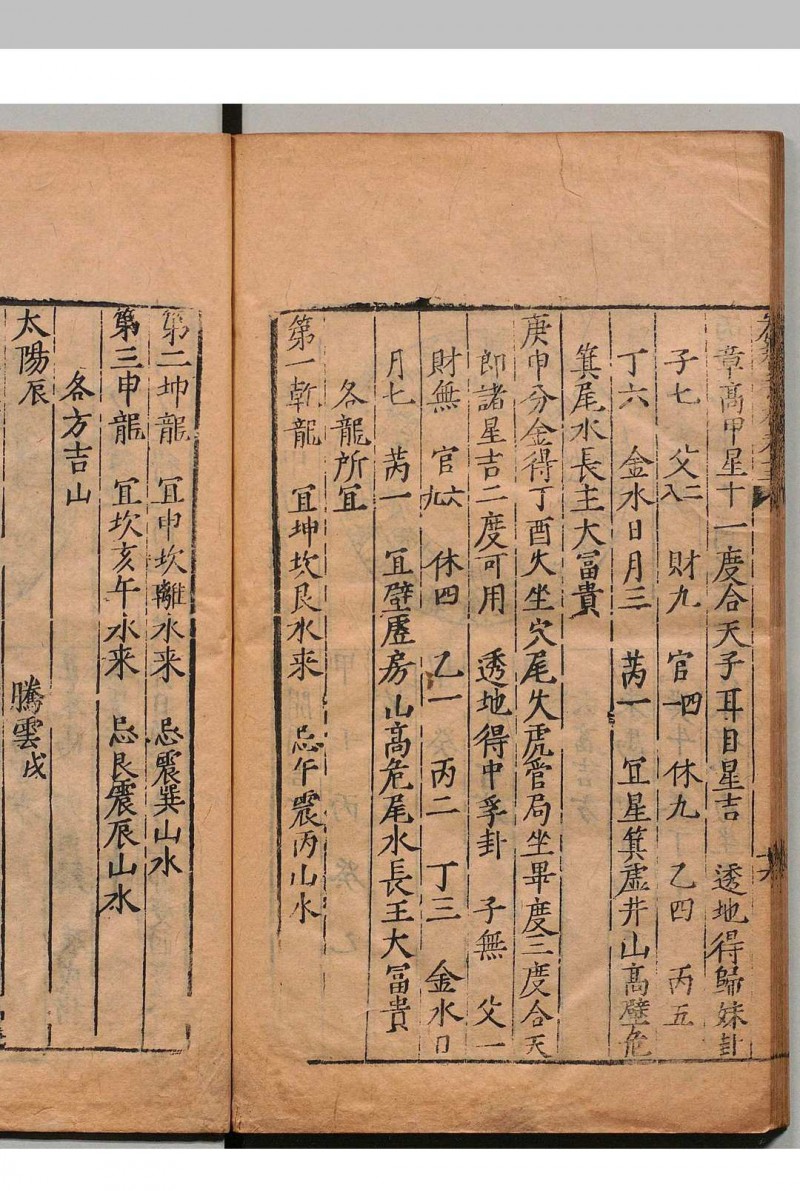 章高甲星十一度合天子耳目星吉　透地得歸妹卦
子七　父二八　財九　官四一　休九　乙四　丙五
丁六　金水日月三　芮一　宜星箕虛井山高壁危
箕尾水長主大富貴
庚申分金得丁酉火坐穴尾火虎管局坐畢度三度合天
即諸星吉二度可用　透地得中孚卦　子無　父一
財無　官六九　休四　乙一　丙二　丁三　金水日
月七　芮一　宜壁虛房山高危尾水長王大富貴
各龍所宜
第一乾龍　宜坤坎艮水来　忌午震丙山水
第二坤龍　宜申坎離水来　忌震巽山水
第三申龍　宜坎亥午水来　忌艮震辰山水
各方吉山
太陽辰　騰雲戌